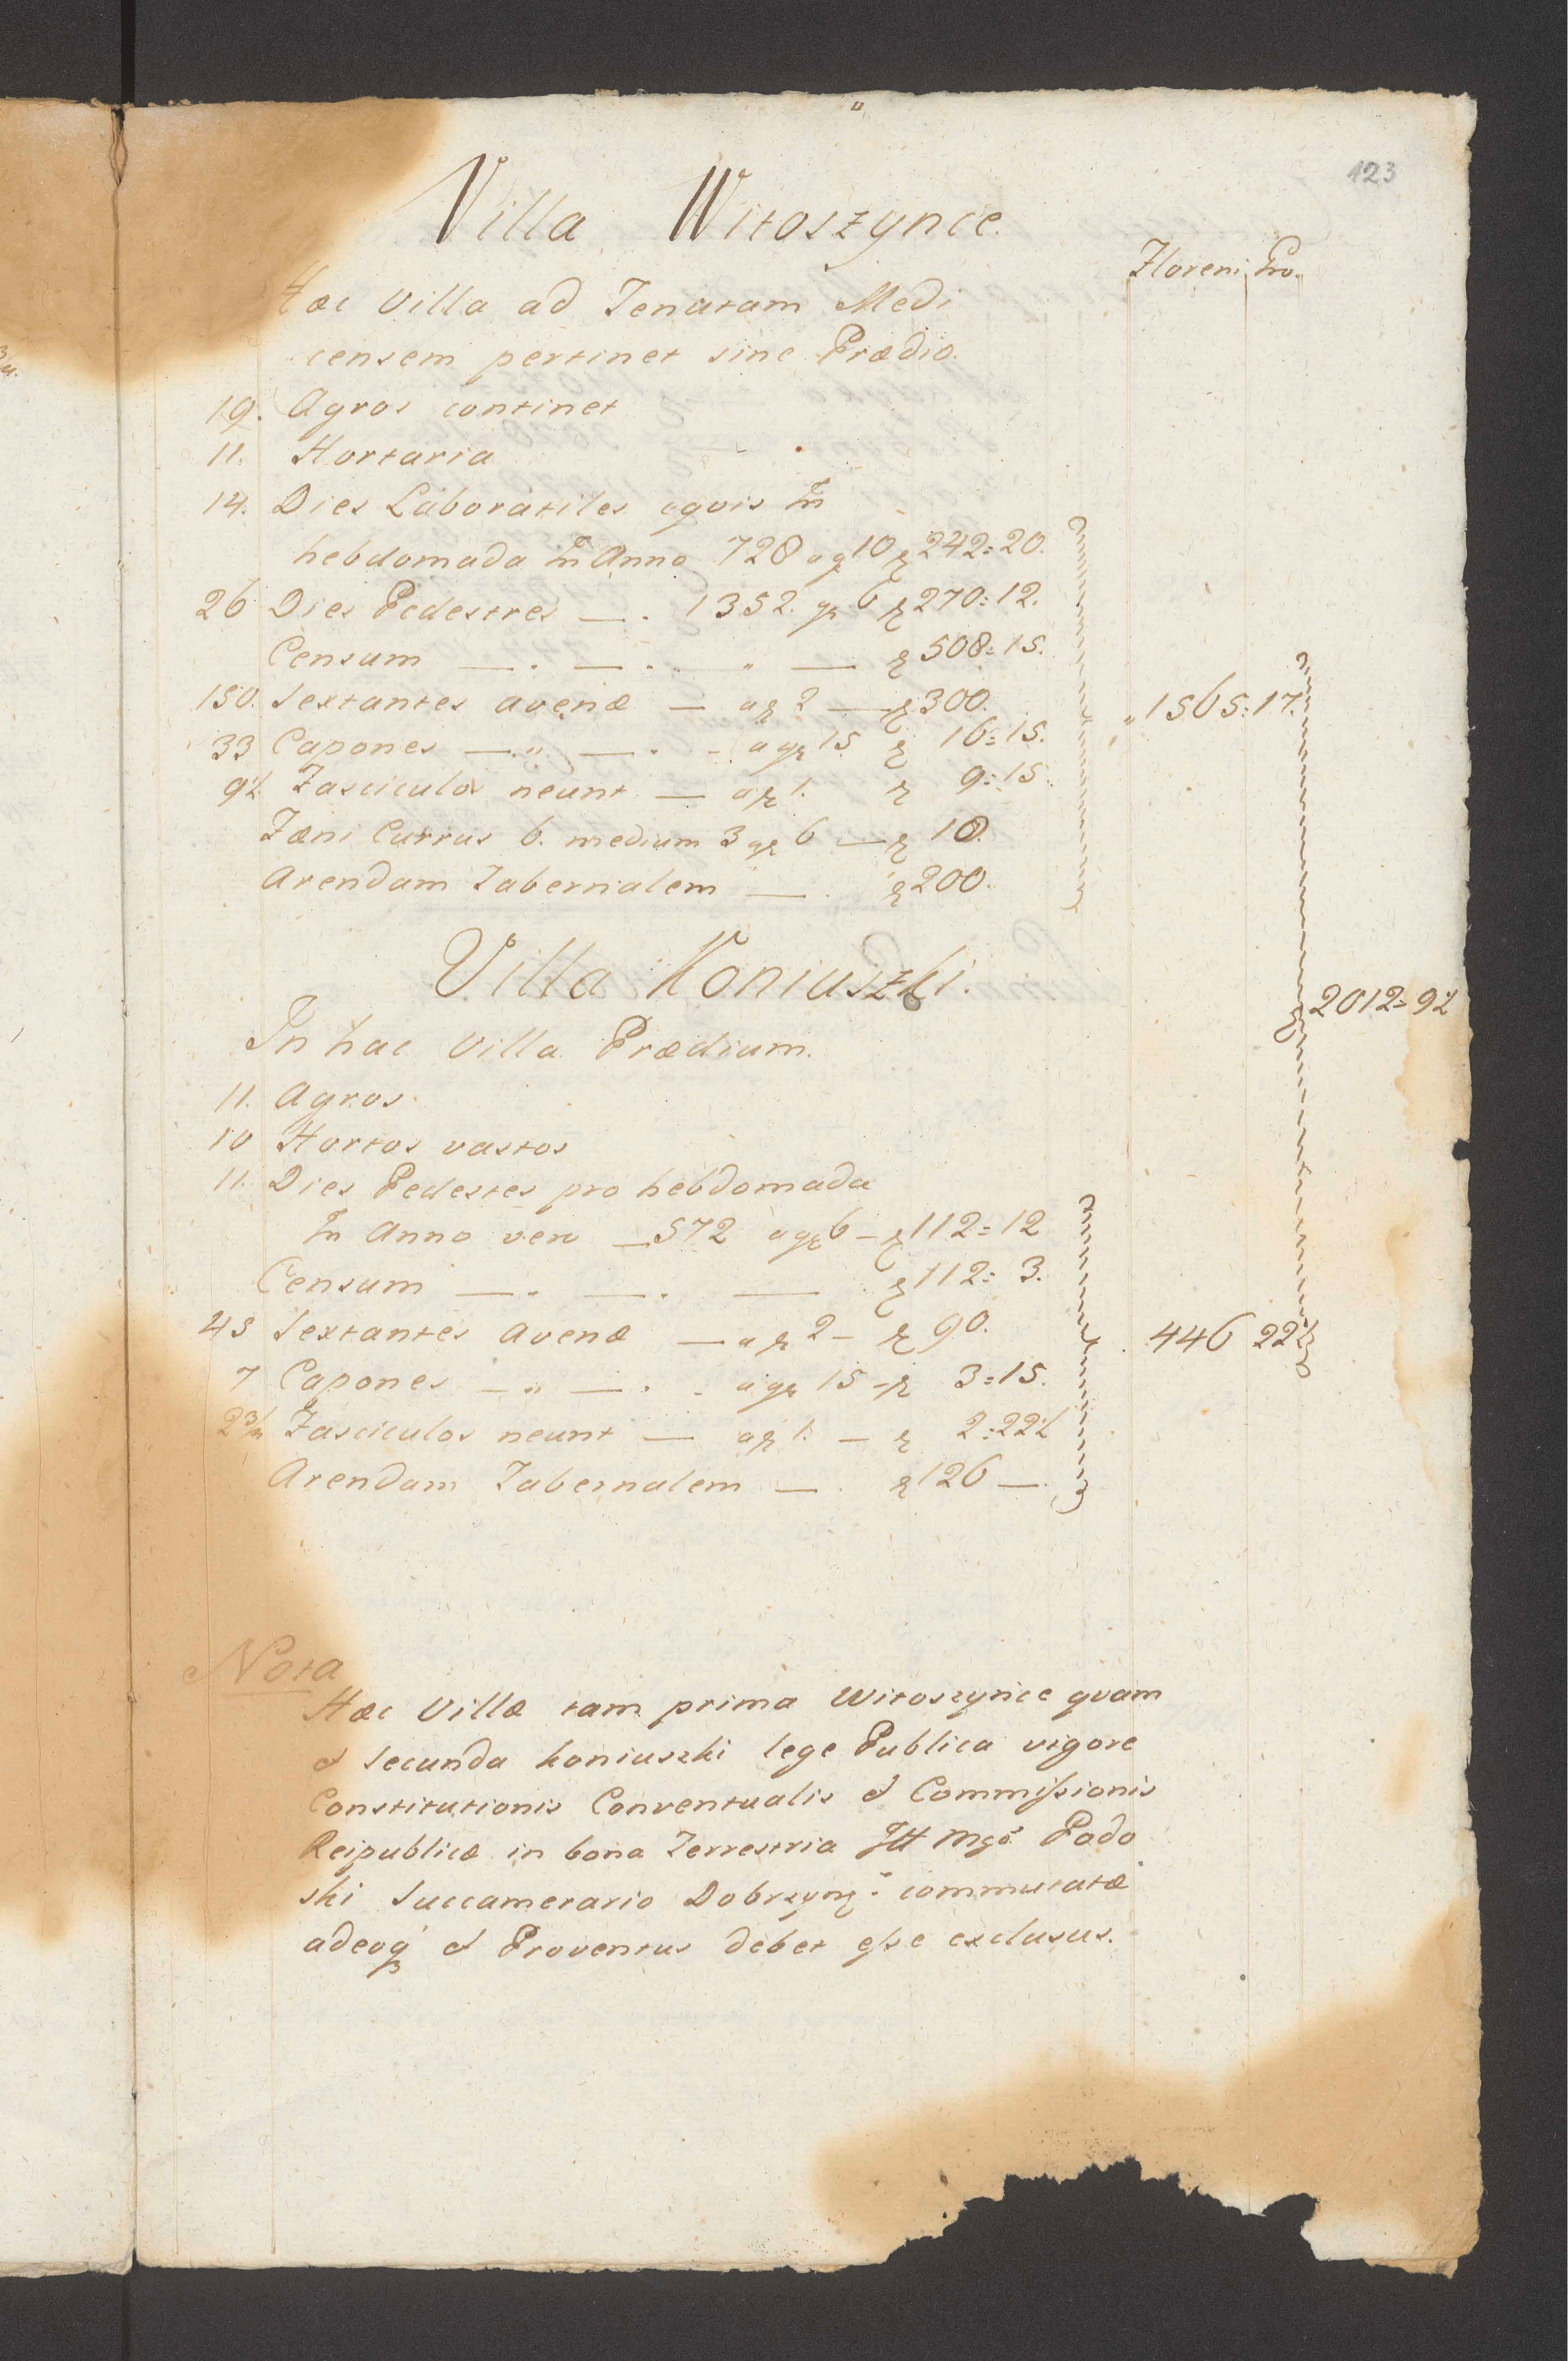 123
Villa Witoszynce.
Floreni Gro.
Hæc Villa ad Tenutam Medi
censem pertinet sine Prædio.
19. Agros continet
11. Hortaria
14. Dies Laboratiles eqvis In
hebdomada In Anno 728 a g 10 f 242=20.
26 Dies Pedestres — . 1352. gr 6 f 270=12.
Censum — . — . „ — f 508=15.
150. Sextantes avenæ — a f 2 — f 300.
„ 1565=17.
33 Capones — „ — . - a gr 15 f 16=15.
9½ Fasciculos neunt — a f 1. f 9=15.
Fæni Currus 6. medium 3 gr 6 — f 18.
Arendam Tabernalem — . f 200.
Villa Koniuszki.
2012=9½
In hac Villa Prædium.
11. Agros
10 Hortos vastos
11. Dies Pedestes pro hebdomada
In Anno vero — 572 a gr 6 - f 112=12
Censum — . — . — f 112=3.
45 Sextantes Avenæ — a f 2 - f 90.
446 22½
7 Capones — „ — . - a gr 15 - f 3=15.
2¾ Fasciculos neunt — a f 1. — f 2=22½
Arendam Tabernalem — . f 126 —.
Nota
Hæc Villæ tam prima Witoszynce qvam
et Secunda Koniuszki lege Publica vigore
Constitutionis Conventualis et Commissionis
Reipublicæ in bona Terrestria Mgo Podo
ski Succamerario Dobrzyn: commutatæ
adeoq et Proventus debet esse exclusus.